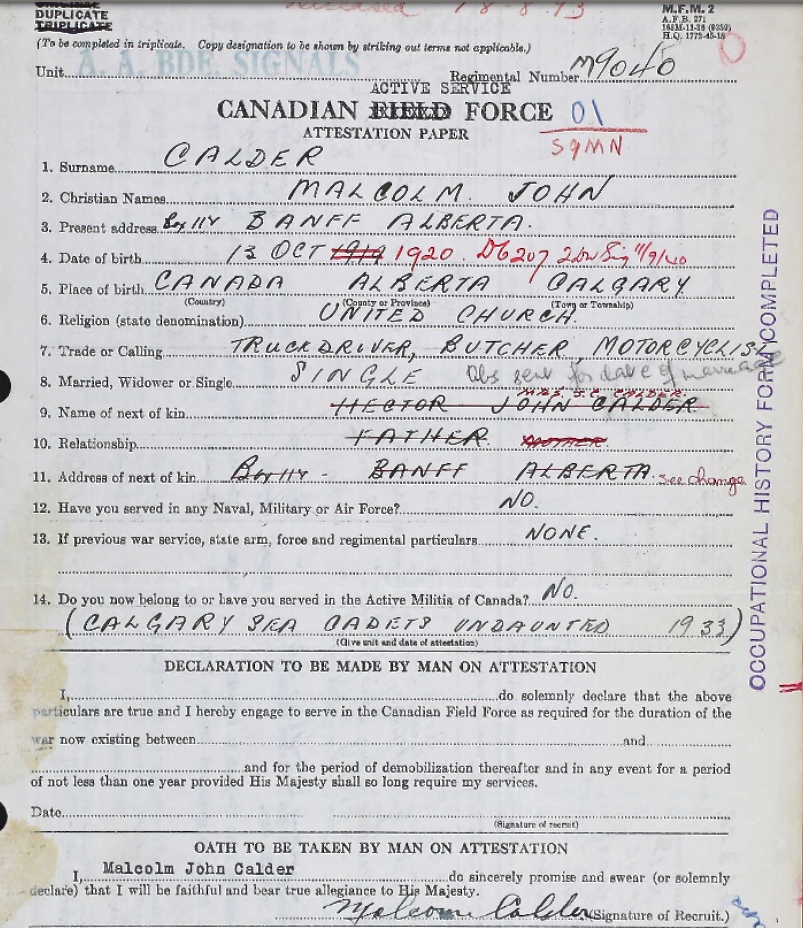 ORIGINAL
DUPLICATE
TRIPLICATE
M.F.M. 2
A.F.B. 271
H.Q. 1772-45-18
(To be completed in triplicate. Copy designation to be shown by striking out terms not applicable.)
A. A. BDE. SIGNALS
Unit Regimental Number M9040
ACTIVE SERVICE
CANADIAN FIELD FORCE 01
ATTESTATION PAPER
SigMN
1. Surname CALDER
2. Christian Names MALCOLM. JOHN
3. Present address Box 114 BANFF ALBERTA.
4. Date of birth 13 OCT 1919 1920. 11/9/40
5. Place of birth CANADA ALBERTA CALGARY
(Country) (County or Province) (Town or Township)
6. Religion (state denomination) UNITED CHURCH.
7. Trade or Calling TRUCK DRIVER, BUTCHER, MOTORCYCLIST
8. Married, Widower or Single SINGLE Obs sent for date of marriage
MRS. J.C. CALDER.
9. Name of next of kin HECTOR JOHN CALDER.
10. Relationship FATHER. MOTHER.
11. Address of next of kin Box 114 - BANFF ALBERTA. see change
12. Have you served in any Naval, Military or Air Force? NO.
13. If previous war service, state arm, force and regimental particulars NONE.
14. Do you now belong to or have you served in the Active Militia of Canada? NO.
(CALGARY SEA CADETS UNDAUNTED 1933)
(Give unit and date of attestation)
DECLARATION TO BE MADE BY MAN ON ATTESTATION
I, do solemnly declare that the above
particulars are true and I hereby engage to serve in the Canadian Field Force as required for the duration of the
war now existing between and
and for the period of demobilization thereafter and in any event for a period
of not less than one year provided His Majesty shall so long require my services.
Date
(Signature of recruit)
OATH TO BE TAKEN BY MAN ON ATTESTATION
I, Malcolm John Calder do sincerely promise and swear (or solemnly
declare) that I will be faithful and bear true allegiance to His Majesty.
Malcolm Calder (Signature of Recruit.)
OCCUPATIONAL HISTORY FORM COMPLETED